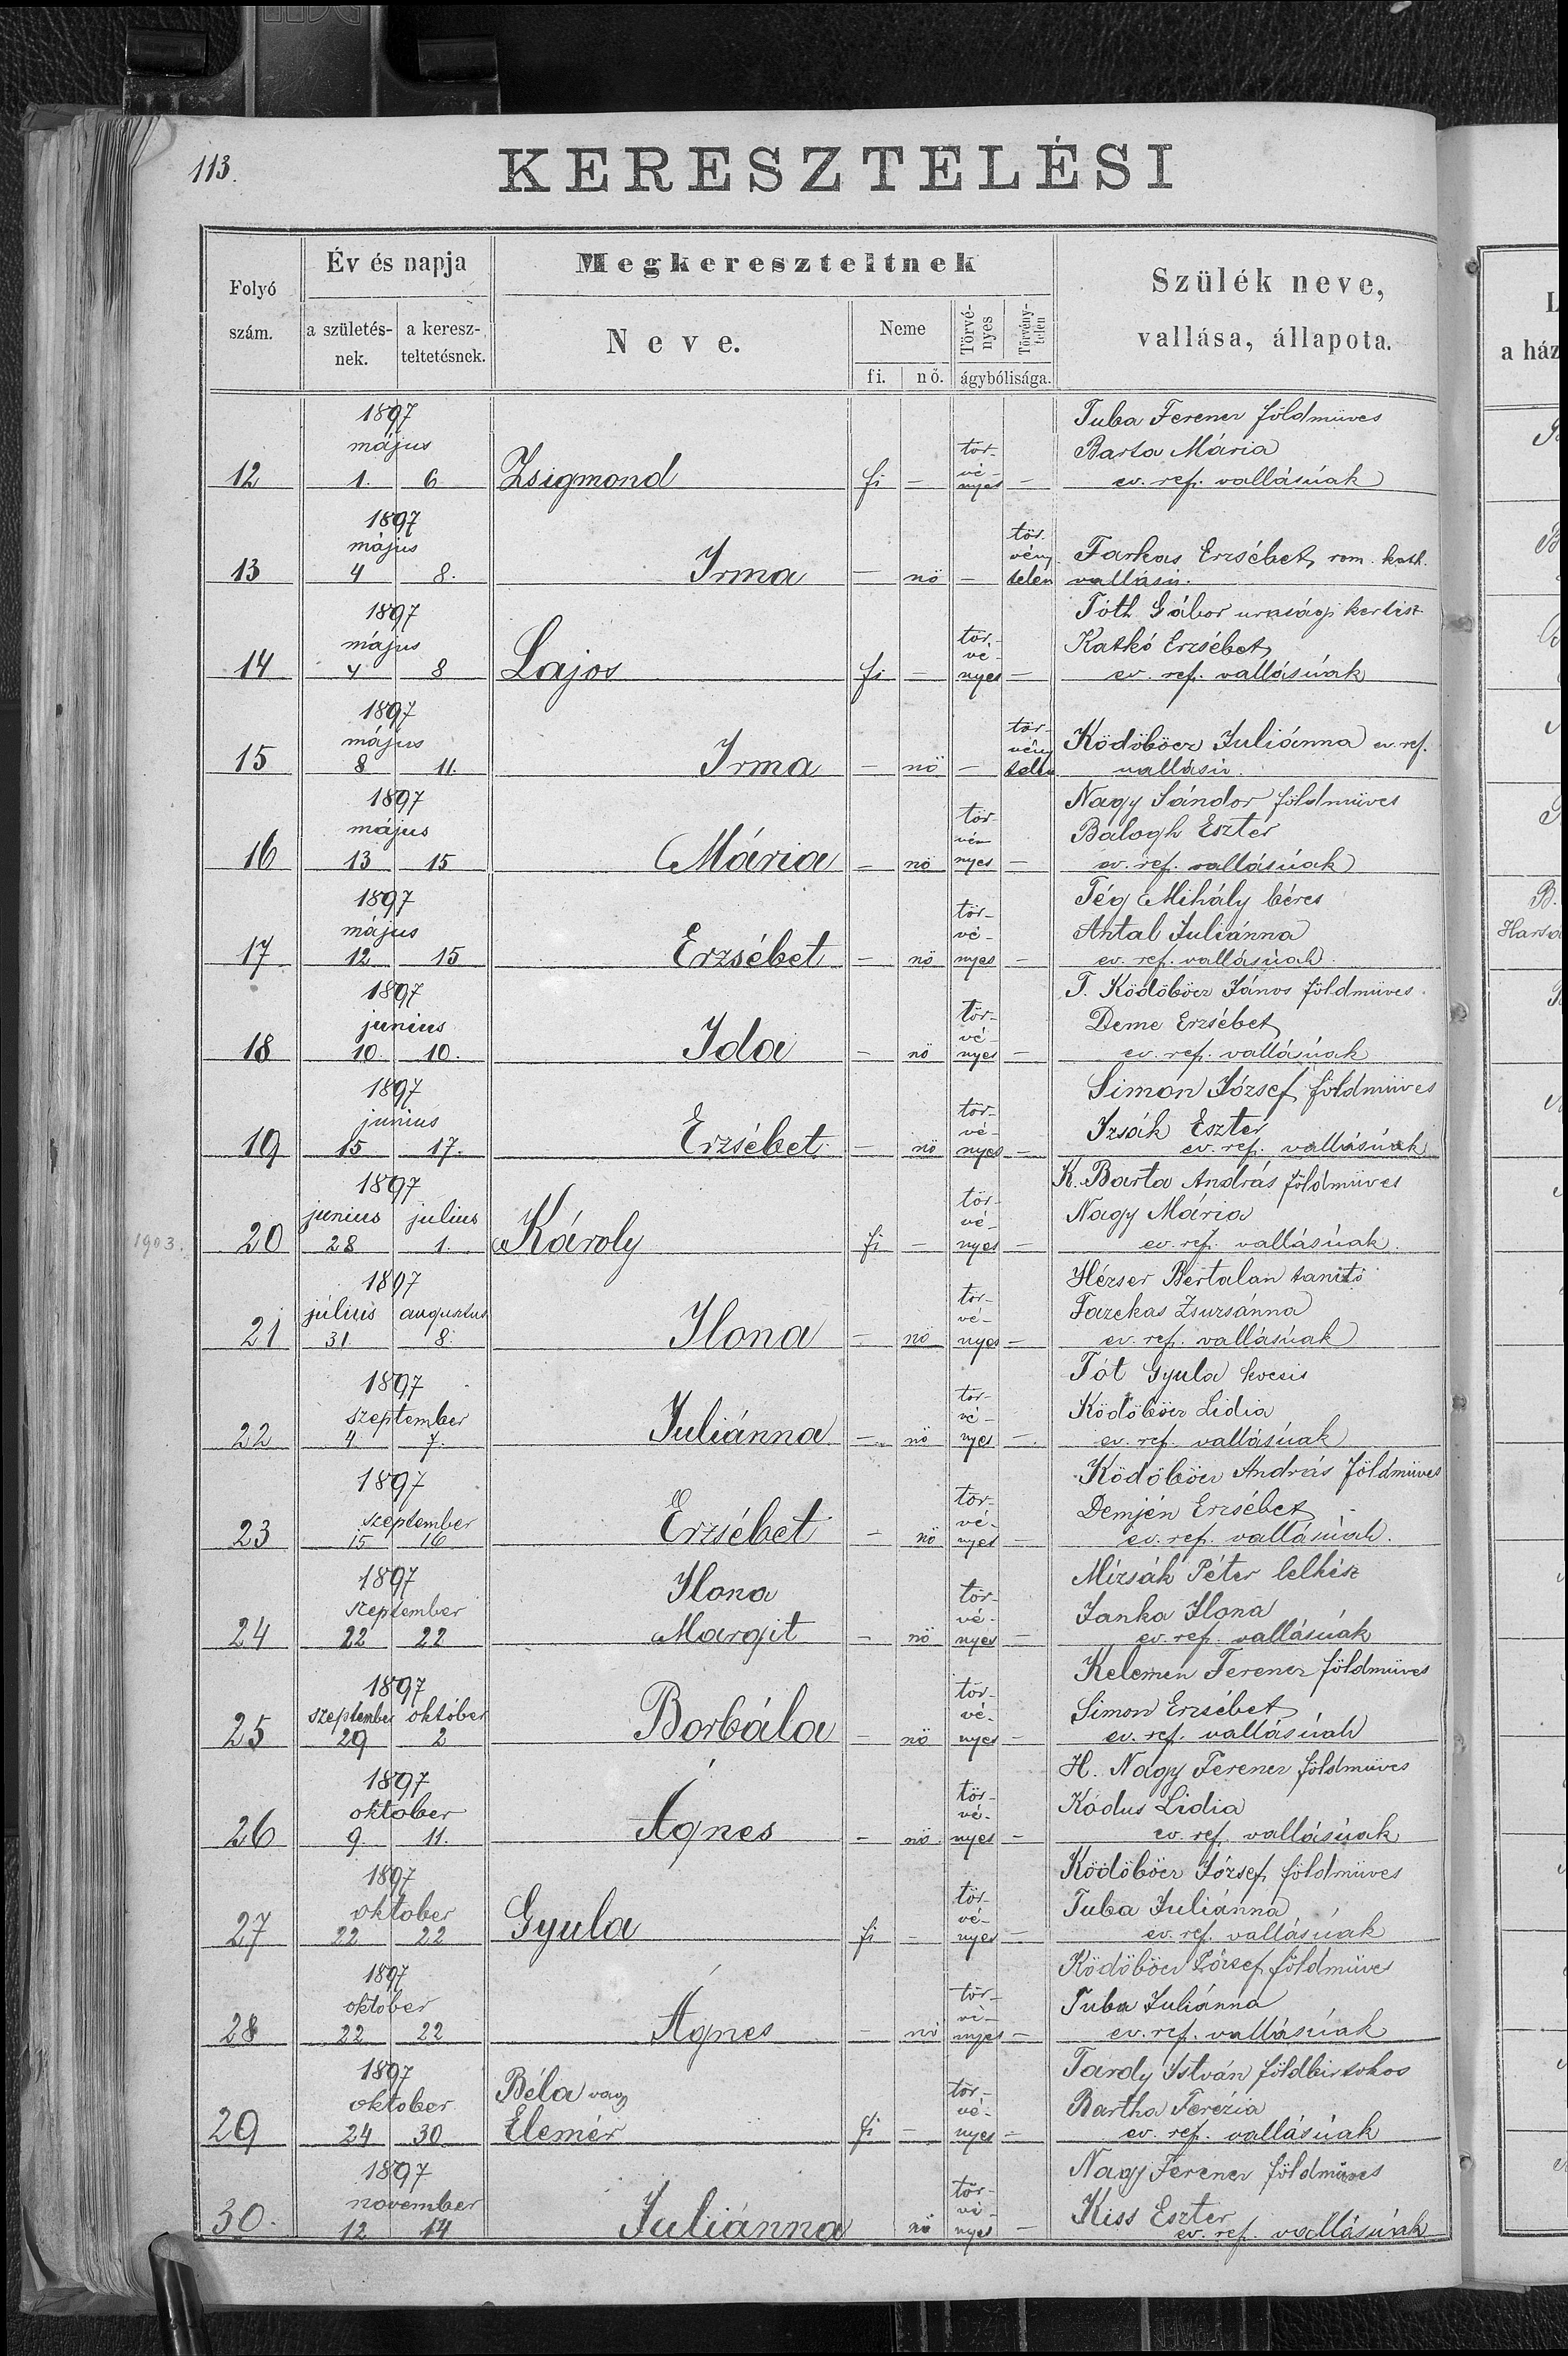 113.
KERESZTELÉSI
Folyó szám.
Év és napja
a születés-
nek.
a keresz-
teltetésnek.
Megkereszteltnek
Neve.
Neme
fi.
nő.
Törvé-
nyes
Törvény-
telen
ágybólisága.
Szülék neve,
vallása, állapota.
1897
május
12 1. 6 Zsigmond fi — tör-
vé-
nyes —
Tuba Ferencz földmüves
Barta Mária
ev. ref. vallásúak
1897
május
13 4 8. Irma — nő — tör-
vény
telen
Farkas Erzsébet, rom. kath.
vallásu.
1897
május
14 4 8 Lajos fi — tör-
vé-
nyes —
Tóth Gábor urasági kertész
Katkó Erzsébet
ev. ref. vallásúak
1897
május
15 8 11. Irma — nő — tör-
vény
telen
Ködöböcz Juliánna ev. ref.
vallásu.
1897
május
16 13 15 Mária — nő tör-
vén
nyes —
Nagy Sándor földmüves
Balogh Eszter
ev. ref. vallásúak
1897
május
17 12 15 Erzsébet — nő tör-
vé-
nyes —
Tég Mihály béres
Antal Juliánna
ev. ref. vallásúak.
1897
junius
18 10 10. Ida — nő tör-
vé-
nyes —
T. Ködöböcz János földmüves.
Deme Erzsébet
ev. ref. vallásúak
1897
junius
19 15 17. Erzsébet — nő tör-
vé-
nyes —
Simon József földmüves
Izsák Eszter
ev. ref. vallásúak
1897
junius julius
1903. 20 28 1. Károly fi — tör-
vé-
nyes —
K. Barta András földmüves
Nagy Mária
ev. ref. vallásúak.
1897
július augusztus
21 31. 8. Ilona — nő tör-
vé-
nyes —
Hézser Bertalan tanitó
Fazekas Zsuzsánna
ev. ref. vallásúak
1897
szeptember
22 4. 7. Juliánna — nő tör-
vé-
nyes —
Tót Gyula kocsis
Ködöböcz Lidia
ev. ref. vallásúak
1897
szeptember
23 15 16 Erzsébet — nő tör-
vé-
nyes —
Ködöböcz András földmüves
Demjén Erzsébet
ev. ref. vallásúak.
1897
szeptember
24 22 22 Ilona
Margit — nő tör-
vé-
nyes —
Mizsák Péter lelkész
Janka Ilona
ev. ref. vallásúak
1897
szeptember október
25 29 2 Borbála — nő tör-
vé-
nyes —
Kelemen Ferencz földmüves
Simon Erzsébet
ev. ref. vallásúak
1897
oktober
26 9. 11. Ágnes — nő tör-
vé-
nyes —
H. Nagy Ferencz földmüves
Kódus Lidia
ev. ref. vallásúak
1897
oktober
27 22 22 Gyula fi — tör-
vé-
nyes —
Ködöböcz József földmüves
Tuba Juliánna
ev. ref. vallásúak
1897
oktober
28 22 22 Ágnes — nő tör-
vé-
nyes —
Ködöböcz József földmüves
Tuba Juliánna
ev. ref. vallásúak
1897
oktober
29 24 30. Béla vagy
Elemér fi — tör-
vé-
nyes —
Tardy István földbirtokos
Bartha Terézia
ev. ref. vallásúak
1897
november
30. 12 14 Juliánna nő tör-
vé-
nyes —
Nagy Ferencz földmüves
Kiss Eszter
ev. ref. vallásúak
a ház